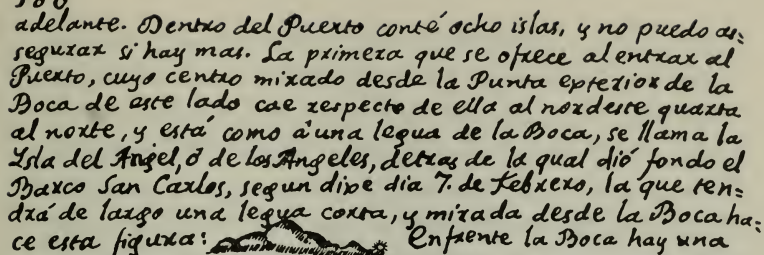 adelante. Dentro del Puerto conté ocho islas, y no puedo as=
segurar si hay mas. La primera que se ofrece al entrar al
Puerto, cuyo centro mirado desde la Punta epterior de la
Boca de este lado cae respecto de ella al nordeste quarta
al norte, y está como à una legua de la Boca, se llama la
Ysla del Angel, ó de los Angeles, detras de la qual dió fondo el
Barco San Carlos, segun dixe dia 7. de Febrero, la que ten=
drá de largo una legua corta, y mirada desde la Boca ha=
ce esta figura: Enfrente la Boca hay una